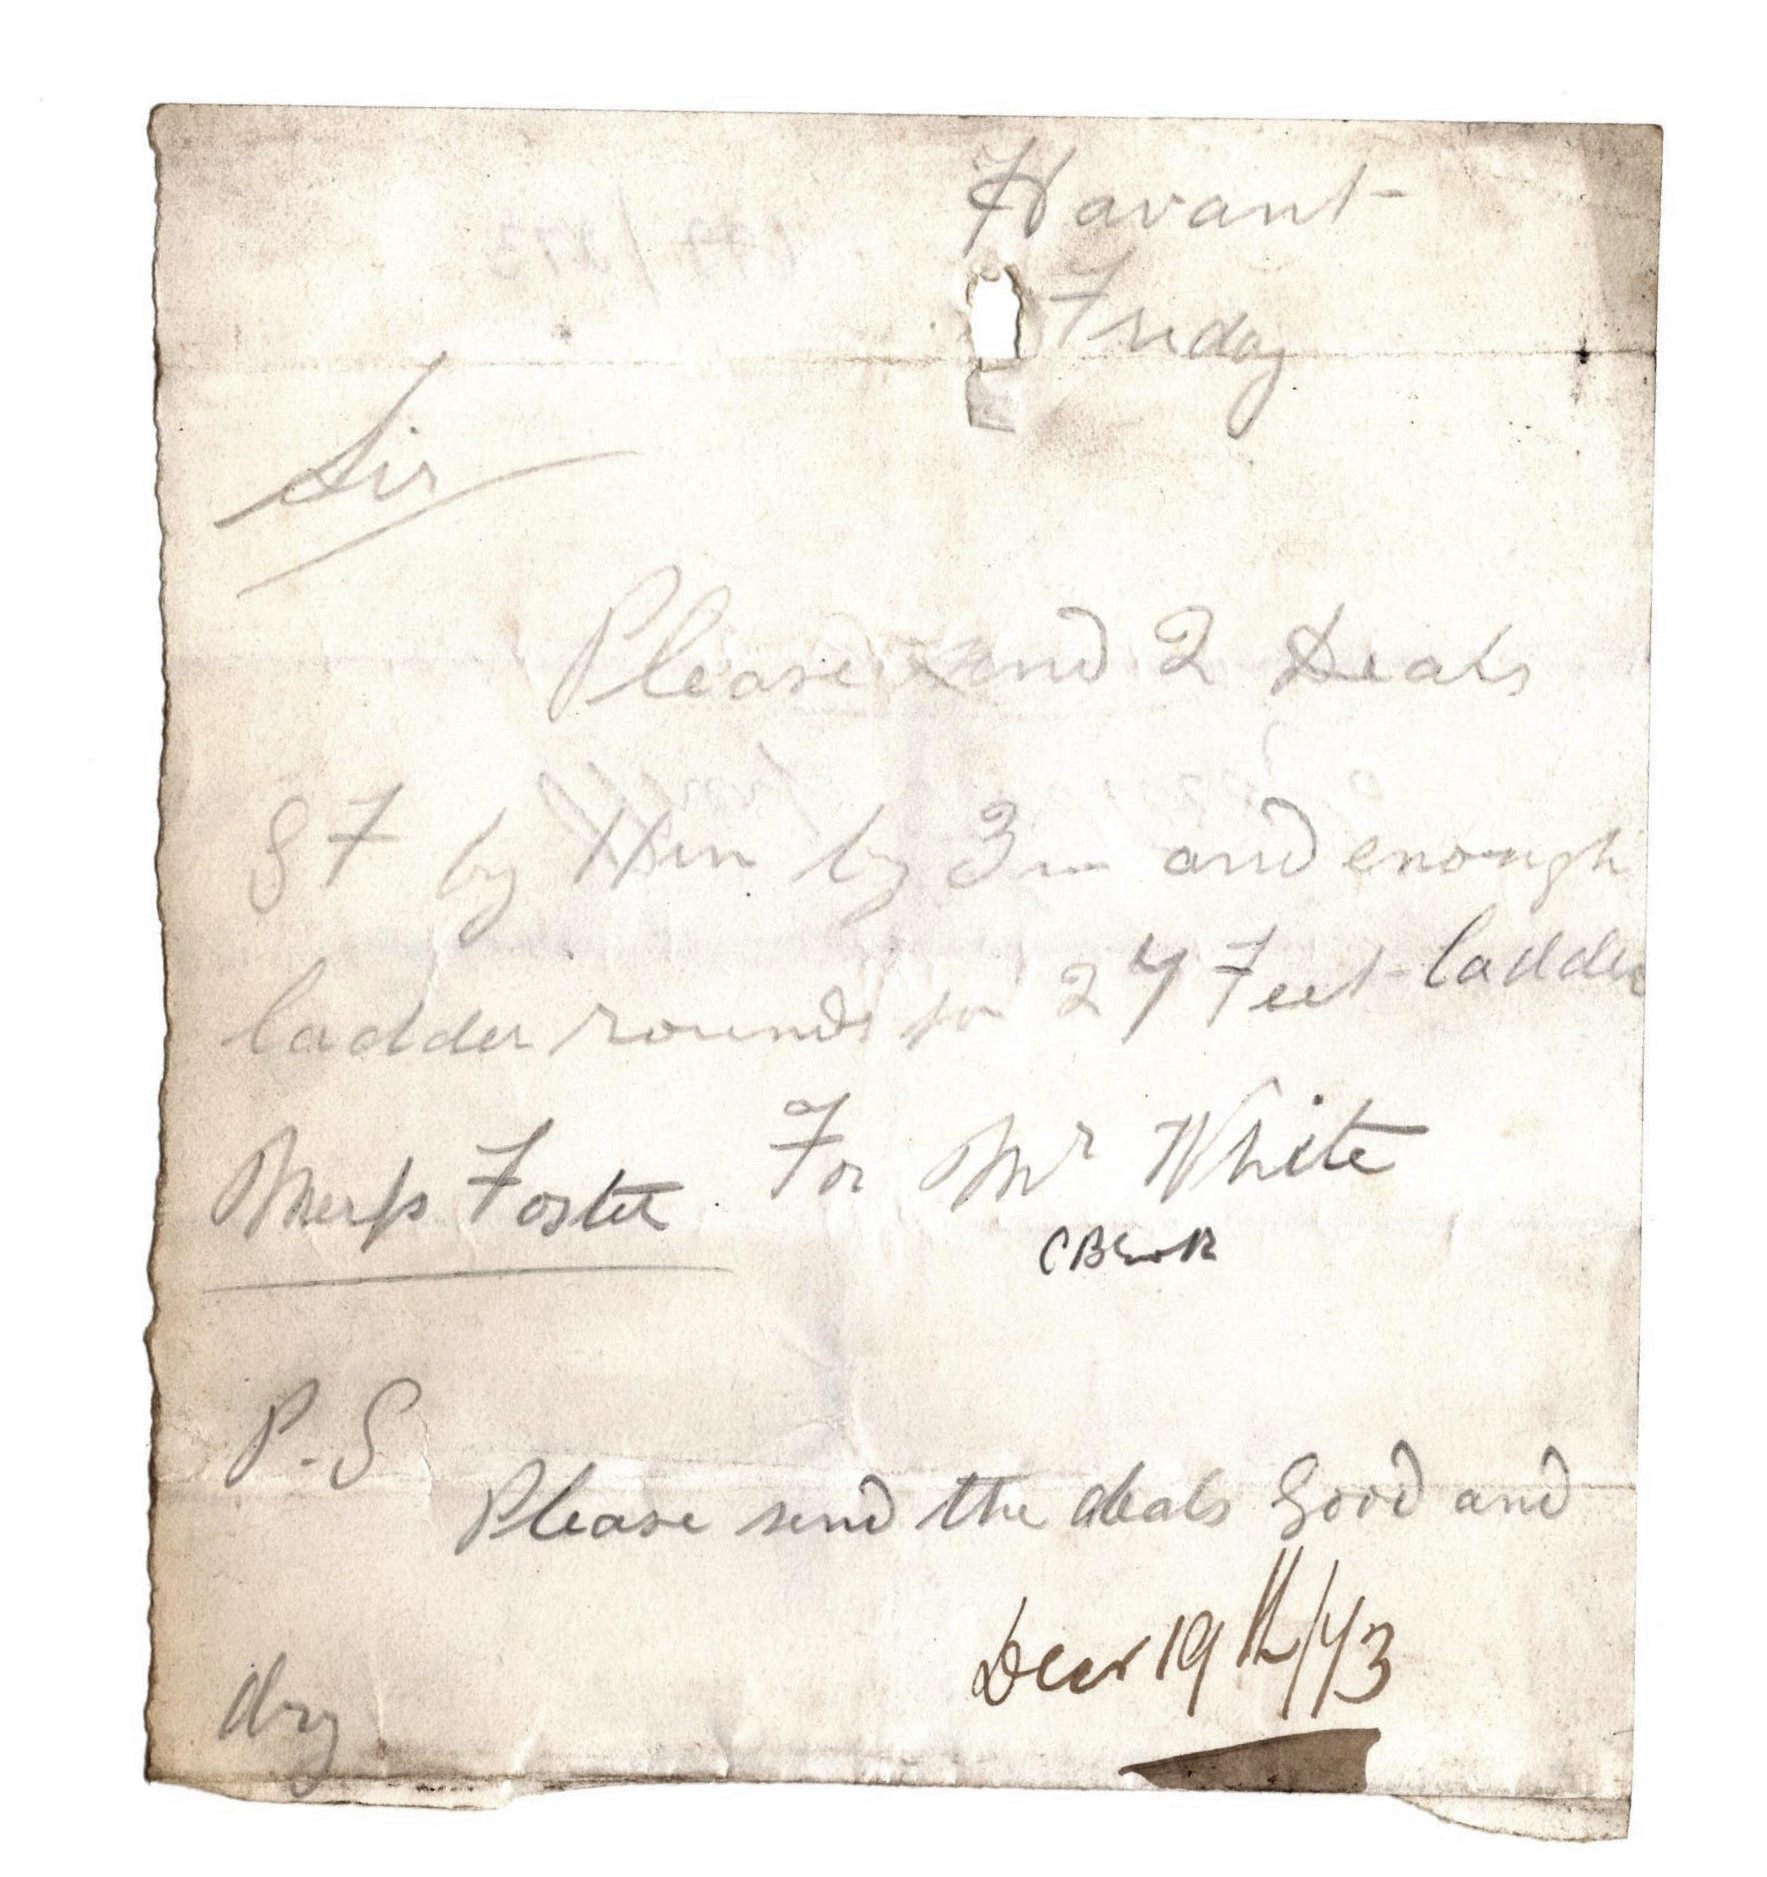 Havant
Friday
Sir
Please send 2 Deals
8 F by 11 in by 3 in and enough
ladder rounds for 27 Feet ladder
Messs Foster For Mr White
P.S
Please send the deals Good and
dry
Decr 19th/43